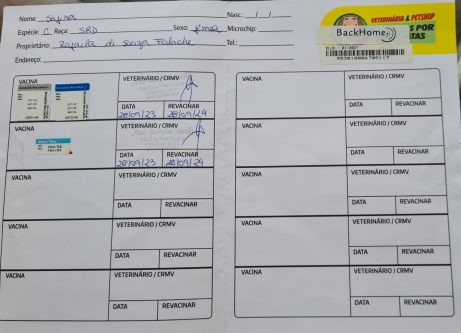 Nome: Safira Nasc.: / /
Espécie: C Raça: SRD Sexo: fêmea Microchip:
Proprietário: Rafaela de Souza Tel.:
Endereço:
VETERINÁRIA & PETSHOP
S POR
ATAS
BackHome
01/2027
VACINA
VETERINÁRIO / CRMV
DATA REVACINAR
28/09/23 28/09/24
VACINA
VETERINÁRIO / CRMV
DATA REVACINAR
28/09/23 28/09/24
VACINA
VETERINÁRIO / CRMV
DATA REVACINAR
VACINA
VETERINÁRIO / CRMV
DATA REVACINAR
VACINA
VETERINÁRIO / CRMV
DATA REVACINAR
VACINA
VETERINÁRIO / CRMV
DATA REVACINAR
VACINA
VETERINÁRIO / CRMV
DATA REVACINAR
VACINA
VETERINÁRIO / CRMV
DATA REVACINAR
VACINA
VETERINÁRIO / CRMV
DATA REVACINAR
VACINA
VETERINÁRIO / CRMV
DATA REVACINAR